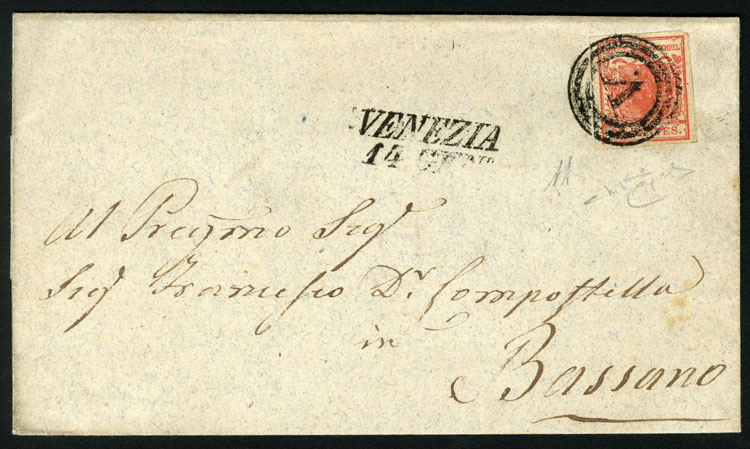 VENEZIA
14
V.
ES.
Al Pregmo Sigr
Sigr Francesco Dr Compostella
in
Bassano